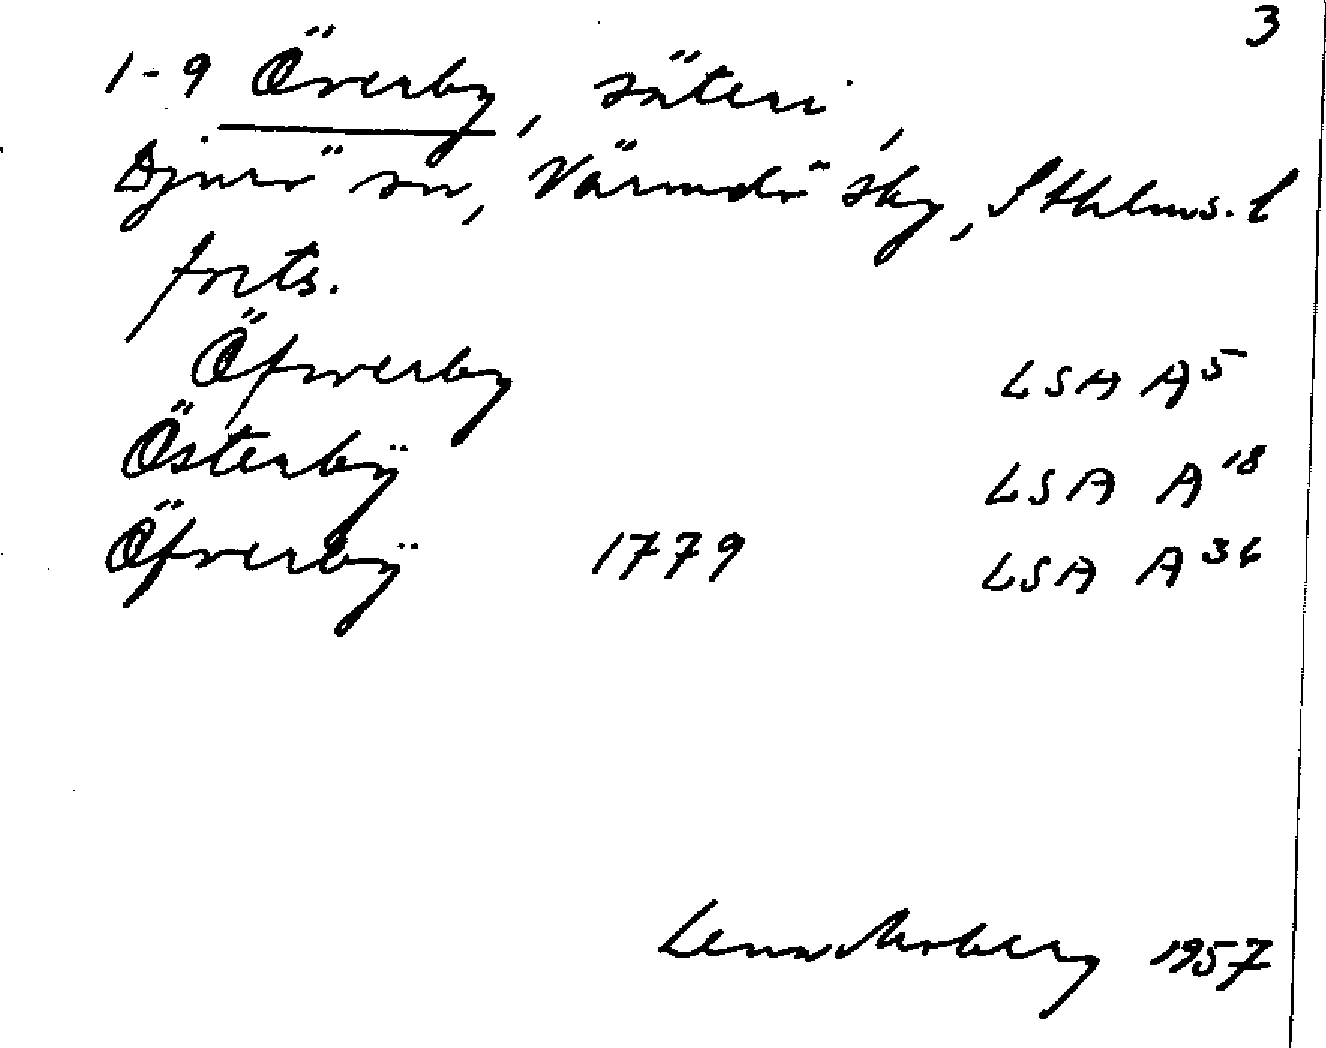 3
1-9 Överby, säteri,
Djurö sn, Värmdö sky, Sthlms. l
forts.
Öfwerby LSA A5
Österbÿ LSA A18
Öfverbÿ 1779 LSA A36
Lena Moberg 1957